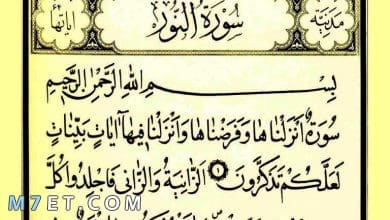 مَدَنِيَّة سُورَةُ النُّور اٰيَاتُهَا
بِسْمِ اللهِ الرَّحْمٰنِ الرَّحِيمِ
سُورَةٌ اَنْزَلْنَاهَا وَفَرَضْنَاهَا وَاَنْزَلْنَا فِيهَا اٰيَاتٍ بَيِّنَاتٍ
لَعَلَّكُمْ تَذَكَّرُونَ ١ اَلزَّانِيَةُ وَالزَّانِى فَاجْلِدُوا كُلَّ
محيط
M7ET.COM